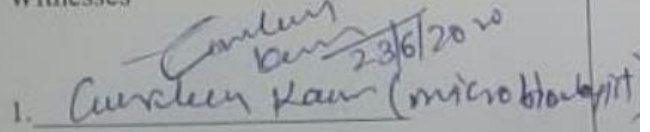 Witnesses
Kaur 23/6/2020
1. Gursheen Kaur (microbiologist)